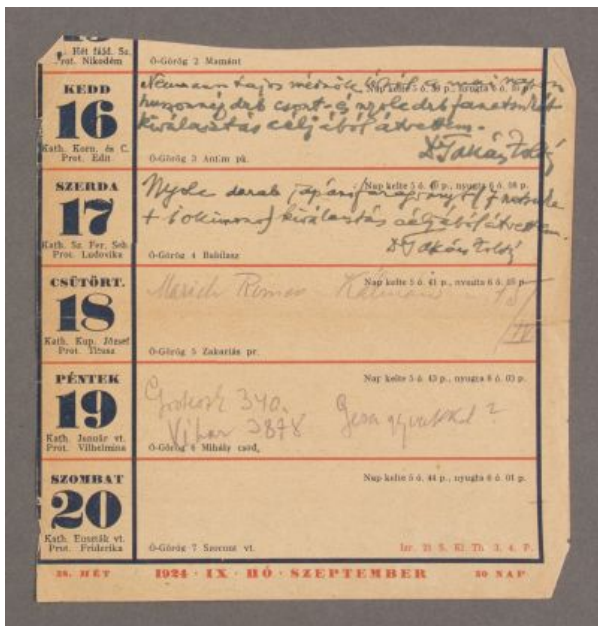 Hét fájd. Sz.
Prot. Nikodém
Ó-Görög 2 Mamánt
KEDD
16
Kath. Korn. és C.
Prot. Edit
Neumann Lajos mérnök úrtól a mai napon
huszonnégy drb csont- és nyolc drb fanetsukét
kiválasztás céljából átvettem.
Dr Takács Zoltán
Ó-Görög 3 Antim pk.
SZERDA
17
Kath. Sz. Fer. Seb.
Prot. Ludovika
Nap kelte 5 ó. 40 p., nyugta 6 ó. 08 p.
Nyolc darab japáni
kiválasztás céljából átvettem.
Dr Takács Zoltán
Ó-Görög 4 Babilasz
CSÜTÖRT.
18
Kath. Kup. József
Prot. Titusz
Nap kelte 5 ó. 41 p., nyugta 6 ó.
Kálmán
Ó-Görög 5 Zakariás pr.
PÉNTEK
19
Kath. Január vt.
Prot. Vilhelmina
Nap kelte 5 ó. 43 p., nyugta 6 ó. 03 p.
340.
Vihar 3878
Ó-Görög 6 Mihály csod.
SZOMBAT
20
Kath. Euszták vt.
Prot. Friderika
Nap kelte 5 ó. 44 p., nyugta 6 ó. 01 p.
Ó-Görög 7 Szozont vt.
Izr. 21 S. Ki Th. 3. 4. P.
38. HÉT
1924 · IX · HÓ · SZEPTEMBER
30 NAP